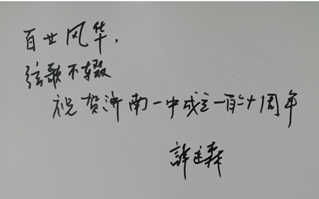 百廿风华,
弦歌不辍
祝贺济南一中成立一百二十周年
许廷森